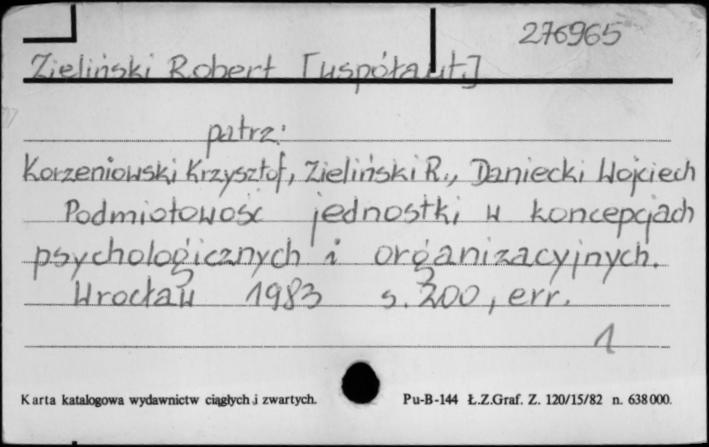 276965
Zieliński Robert [uspółaut.]
patrz:
Korzeniowski Krzysztof, Zieliński R., Daniecki Wojciech
Podmiotowość jednostki w koncepcjach
psychologicznych i organizacyjnych.
Wrocław 1983 s. 200, err.
1
Karta katalogowa wydawnictw ciągłych i zwartych. Pu-B-144 Ł.Z.Graf. Z. 120/15/82 n. 638000.